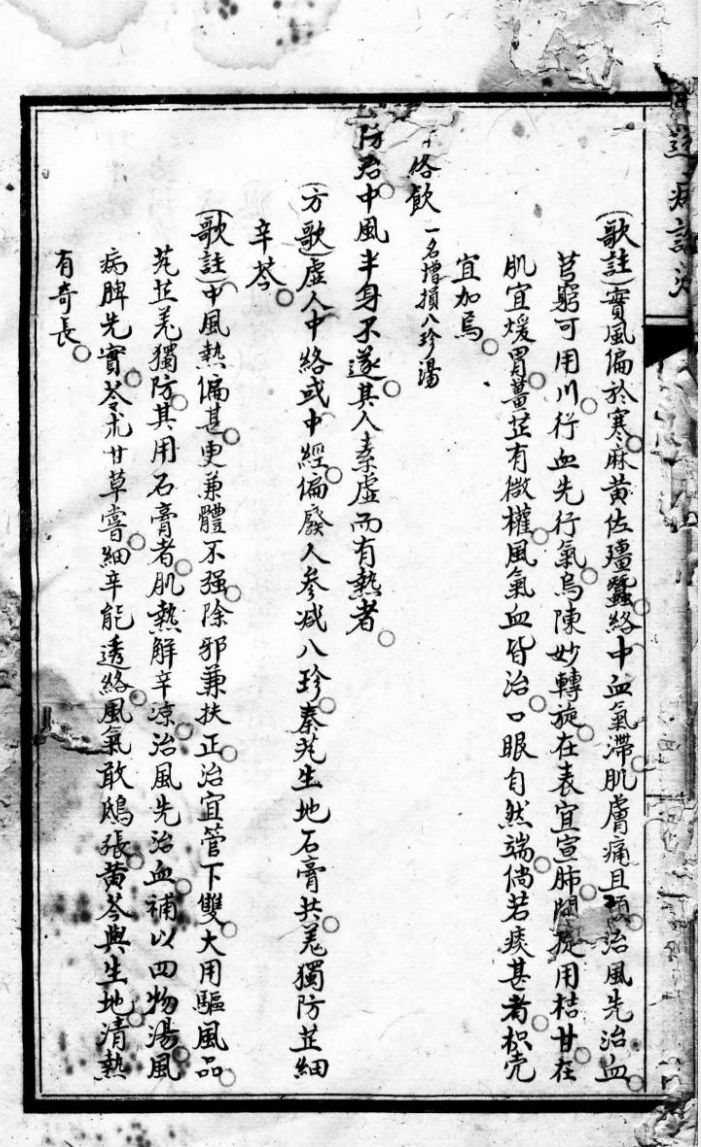 (歌註)實風偏於寒。麻黃佐殭蠶。絡中血氣滯。肌膚痛且頑。治風先治血。
芎窮可用川。行血先行氣。烏陳妙轉旋。在表宜宣肺。開提用桔甘。在
肌宜煖胃。薑芷有微權。風氣血皆治。口眼自然端。倘若痰甚者。枳壳
宜加焉。
絡飲 一名增損八珍湯
防治中風半身不遂。其人素虛而有熱者。
(方歌)虛人中絡或中經。偏廢人參減八珍。秦艽生地石膏共。羌獨防芷細
辛芩。
(歌註)中風熱偏甚。更兼體不强。除邪兼扶正。治宜管下雙。大用驅風品。
艽芷羌獨防。其用石膏者。肌熱解辛凉。治風先治血。補以四物湯。風
病脾先實。苓朮甘草嘗。細辛能透絡。風氣敢鴟張。黃芩與生地。清熱
有奇長。